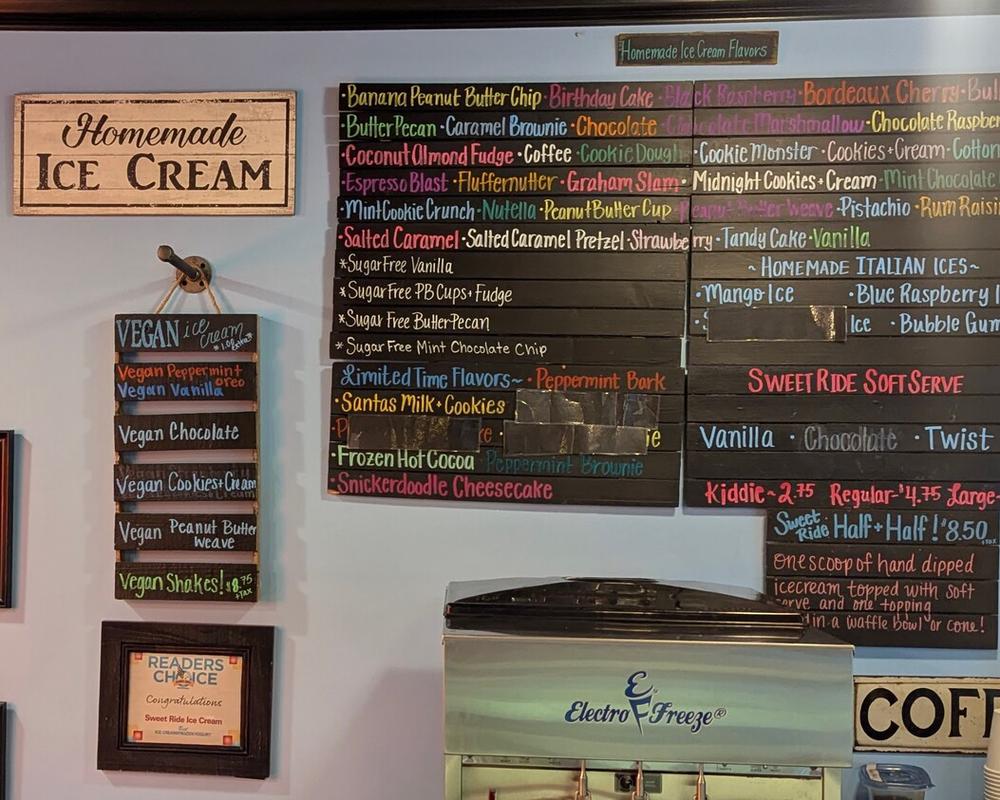 Homemade Ice Cream Flavors
Homemade
ICE CREAM
·Banana Peanut Butter Chip·Birthday Cake·Black Raspberry·Bordeaux Cherry·
·Butter Pecan·Caramel Brownie·Chocolate·Chocolate Marshmallow·Chocolate
·Coconut Almond Fudge·Coffee·Cookie Dough·Cookie Monster·Cookies+Cream·
·Espresso Blast·Fluffernutter·Graham Slam·Midnight Cookies+Cream·Mint Chocolate
·Mint Cookie Crunch·Nutella·Peanut Butter Cup·Peanut Butter Weave·Pistachio·Rum
·Salted Caramel·Salted Caramel Pretzel·Strawberry·Tandy Cake·Vanilla
*Sugar Free Vanilla
*Sugar Free PB Cups+Fudge
*Sugar Free Butter Pecan
*Sugar Free Mint Chocolate Chip
Limited Time Flavors~·Peppermint Bark
·Santas Milk+Cookies
·Frozen Hot Cocoa·Peppermint Brownie
·Snickerdoodle Cheesecake
~HOMEMADE ITALIAN ICES~
·Mango Ice ·Blue Raspberry
Ice ·Bubble
SWEET RIDE SOFT SERVE
Vanilla · Chocolate · Twist
Kiddie~2.75 Regular~$4.75 Large~
Sweet Ride Half+Half! $8.50
+TAX
one scoop of hand dipped
icecream topped with soft
serve and one topping
in a waffle bowl or cone!
VEGAN ice cream
*1.00 Extra*
Vegan Peppermint
oreo
Vegan Vanilla
Vegan Chocolate
Vegan Cookies+Cream
Vegan Peanut Butter
Weave
Vegan Shakes! $8.75
+TAX
READERS
CHOICE
Congratulations
Sweet Ride Ice Cream
Best
ICE CREAM/FROZEN YOGURT
Electro Freeze®